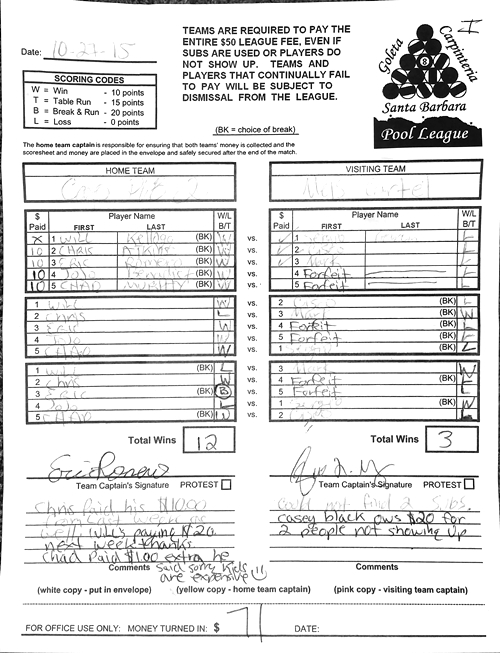 Date: 10-21-15
TEAMS ARE REQUIRED TO PAY THE
ENTIRE $50 LEAGUE FEE, EVEN IF
SUBS ARE USED OR PLAYERS DO
NOT SHOW UP. TEAMS AND
PLAYERS THAT CONTINUALLY FAIL
TO PAY WILL BE SUBJECT TO
DISMISSAL FROM THE LEAGUE.
(BK = choice of break)
I
Goleta
Carpinteria
8
Santa Barbara
Pool League
SCORING CODES
W = Win - 10 points
T = Table Run - 15 points
B = Break & Run - 20 points
L = Loss - 0 points
The home team captain is responsible for ensuring that both teams' money is collected and the
scoresheet and money are placed in the envelope and safely secured after the end of the match.
HOME TEAM
VISITING TEAM
$ Paid Player Name FIRST LAST W/L B/T
$ Paid Player Name FIRST LAST W/L B/T
X 1 Will (BK) W vs. 1 L
10 2 Chris (BK) W vs. 2 L
10 3 Eric Romero (BK) W vs. 3 Mark L
10 4 JoJo (BK) W vs. 4 Forfeit L
10 5 CHAD MURITY (BK) W vs. 5 Forfeit L
1 Will W vs. 2 (BK) L
2 Chris L vs. 3 Mark (BK) W
3 Eric W vs. 4 Forfeit (BK) L
4 JoJo W vs. 5 Forfeit (BK) L
5 CHAD W vs. 1 (BK) L
1 Will (BK) L vs. 3 Mark W
2 Chris W vs. 4 Forfeit (BK) L
3 Eric (BK) B vs. 5 Forfeit L
4 JoJo L vs. 1 (BK) W
5 CHAD (BK) W vs. 2 L
Total Wins 12
Total Wins 3
Team Captain's Signature PROTEST
Team Captain's Signature PROTEST
Chris Paid his $10.00
Will's paying $20
next week thanks
Chad Paid $1.00 extra he
said sorry kids
are expensive
Comments
could not find 2 subs.
casey black ows $20 for
2 people not showing up
Comments
(white copy - put in envelope) (yellow copy - home team captain) (pink copy - visiting team captain)
FOR OFFICE USE ONLY: MONEY TURNED IN: $ 71 DATE: